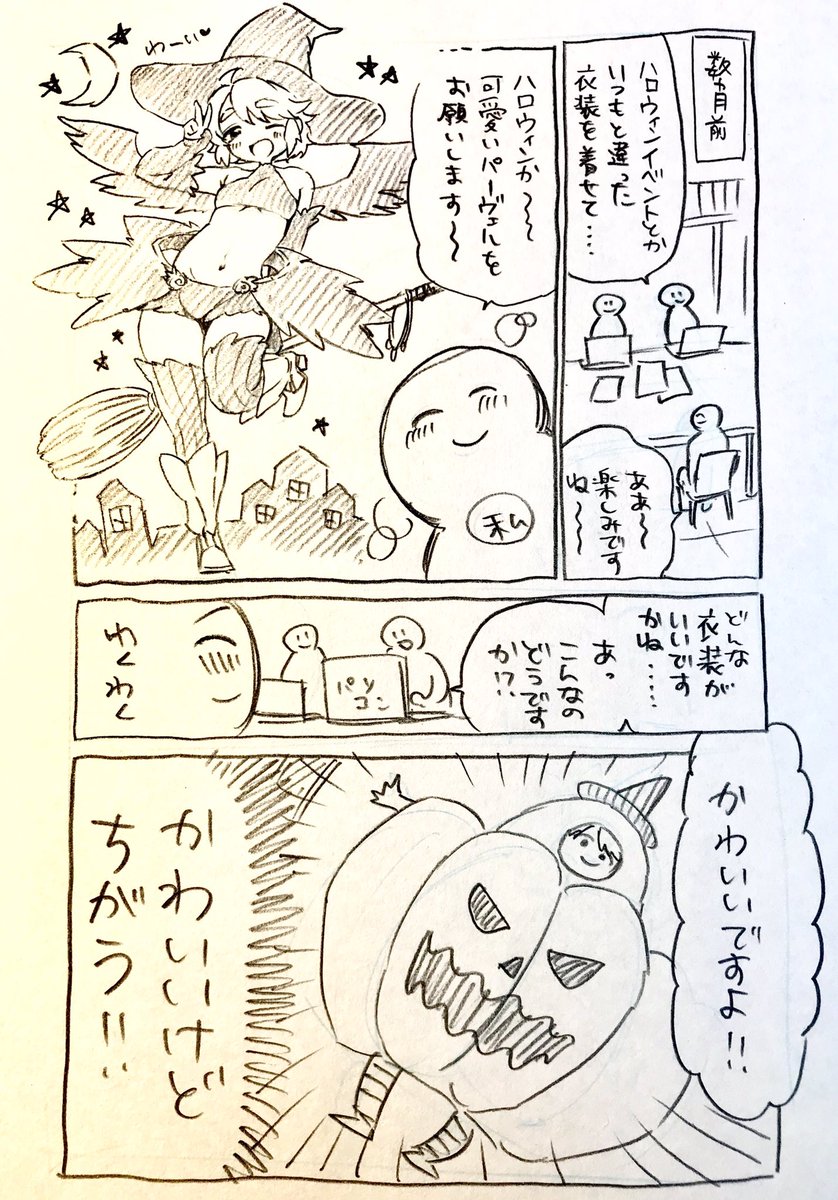 数ヵ月前
ハロウィンイベントとか
いつもと違った
衣装を着せて‥‥
ああ〜
楽しみです
ね〜〜
ハロウィンか〜〜
可愛いパーヴェルを
お願いします〜〜
わーい♥
私
どんな
衣装が
いいです
かね‥‥‥
あっ
こんなの
どうです
か!?
パソ
コン
わくわく
かわいいですよ!!
かわいいけど
ちがう!!